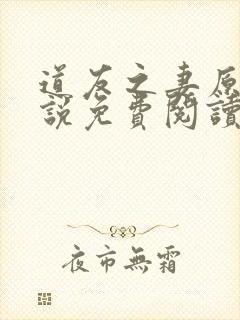 道友之妻原
説免費閱讀
夜市無霜